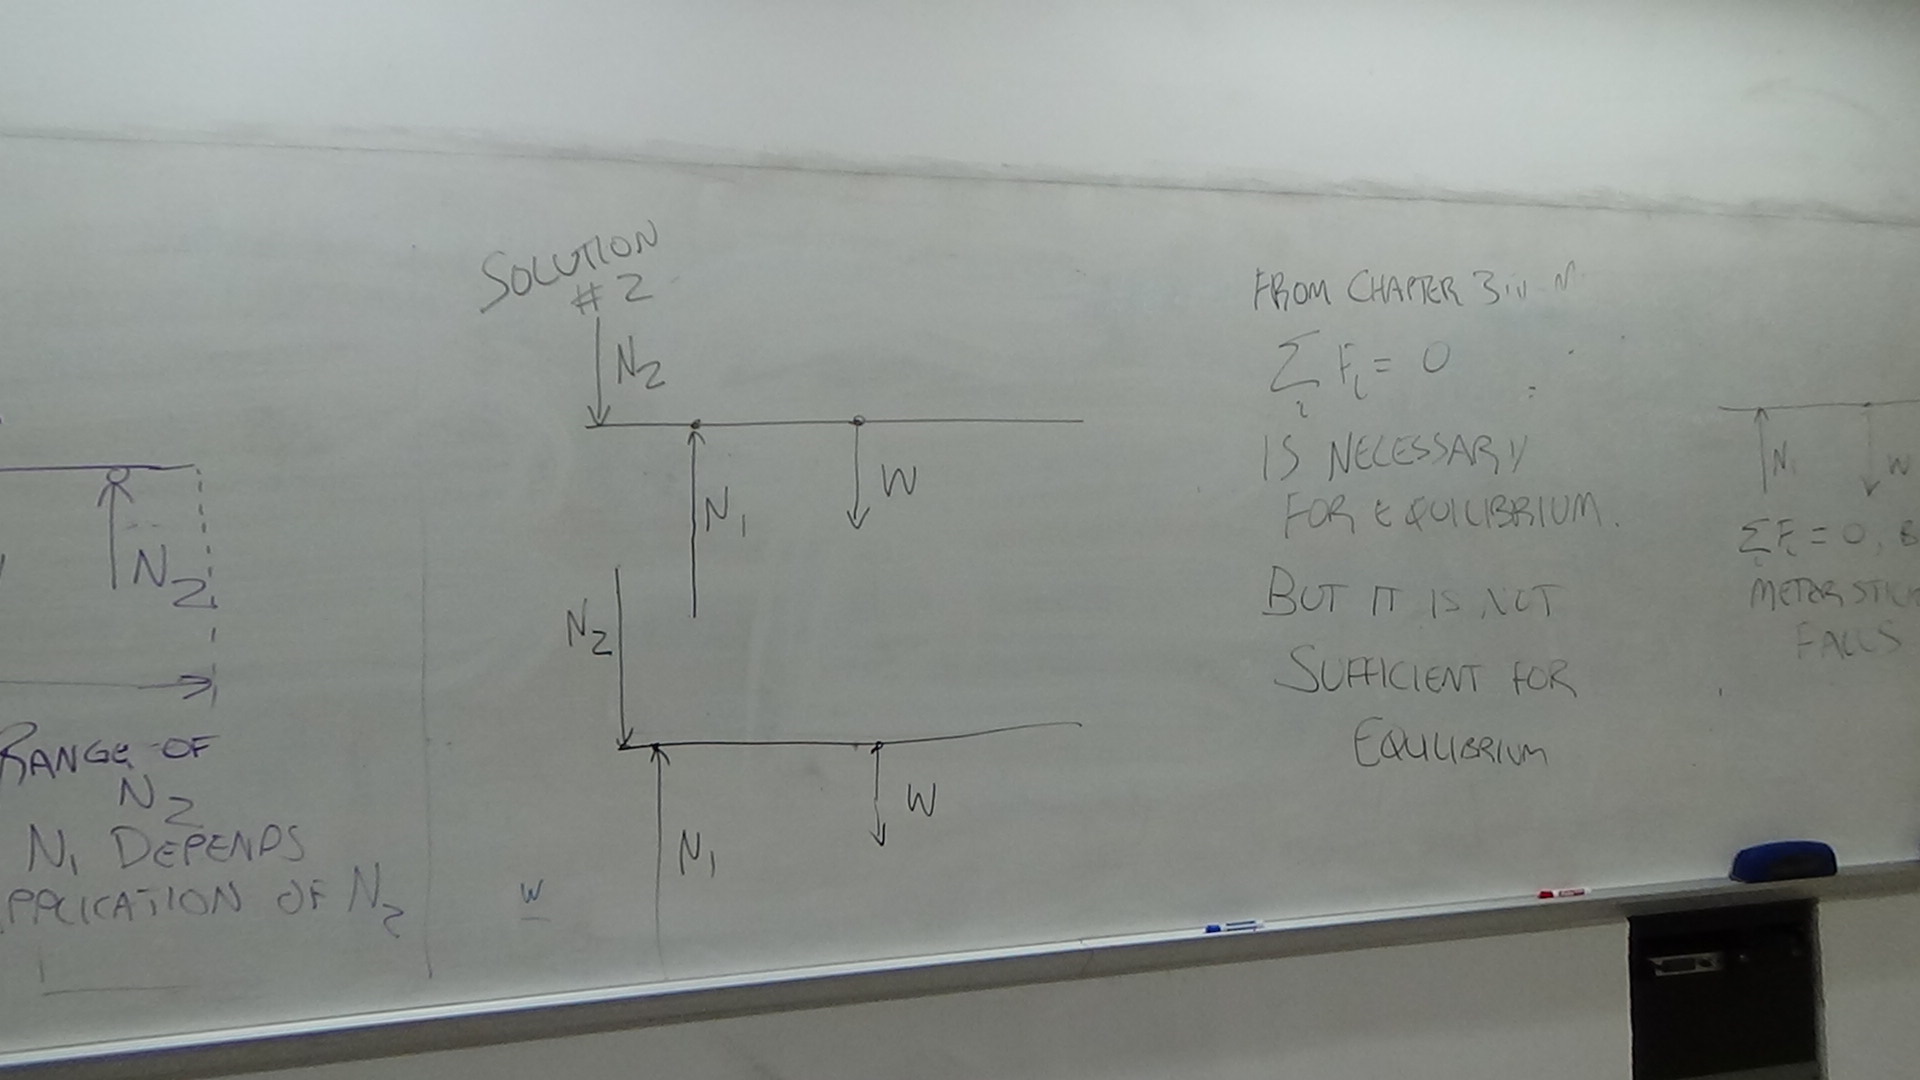 N2
RANGE OF
N2
N1 DEPENDS
PPLICATION OF N2
SOLUTION
#2
N2
N1
W
N2
N1
W
W
FROM CHAPTER 3
∑ Fi = 0
i
IS NECESSARY
FOR EQUILIBRIUM.
BUT IT IS NOT
SUFFICIENT FOR
EQUILIBRIUM
N1
W
∑Fi = 0, B
i
METER STICK
FALLS